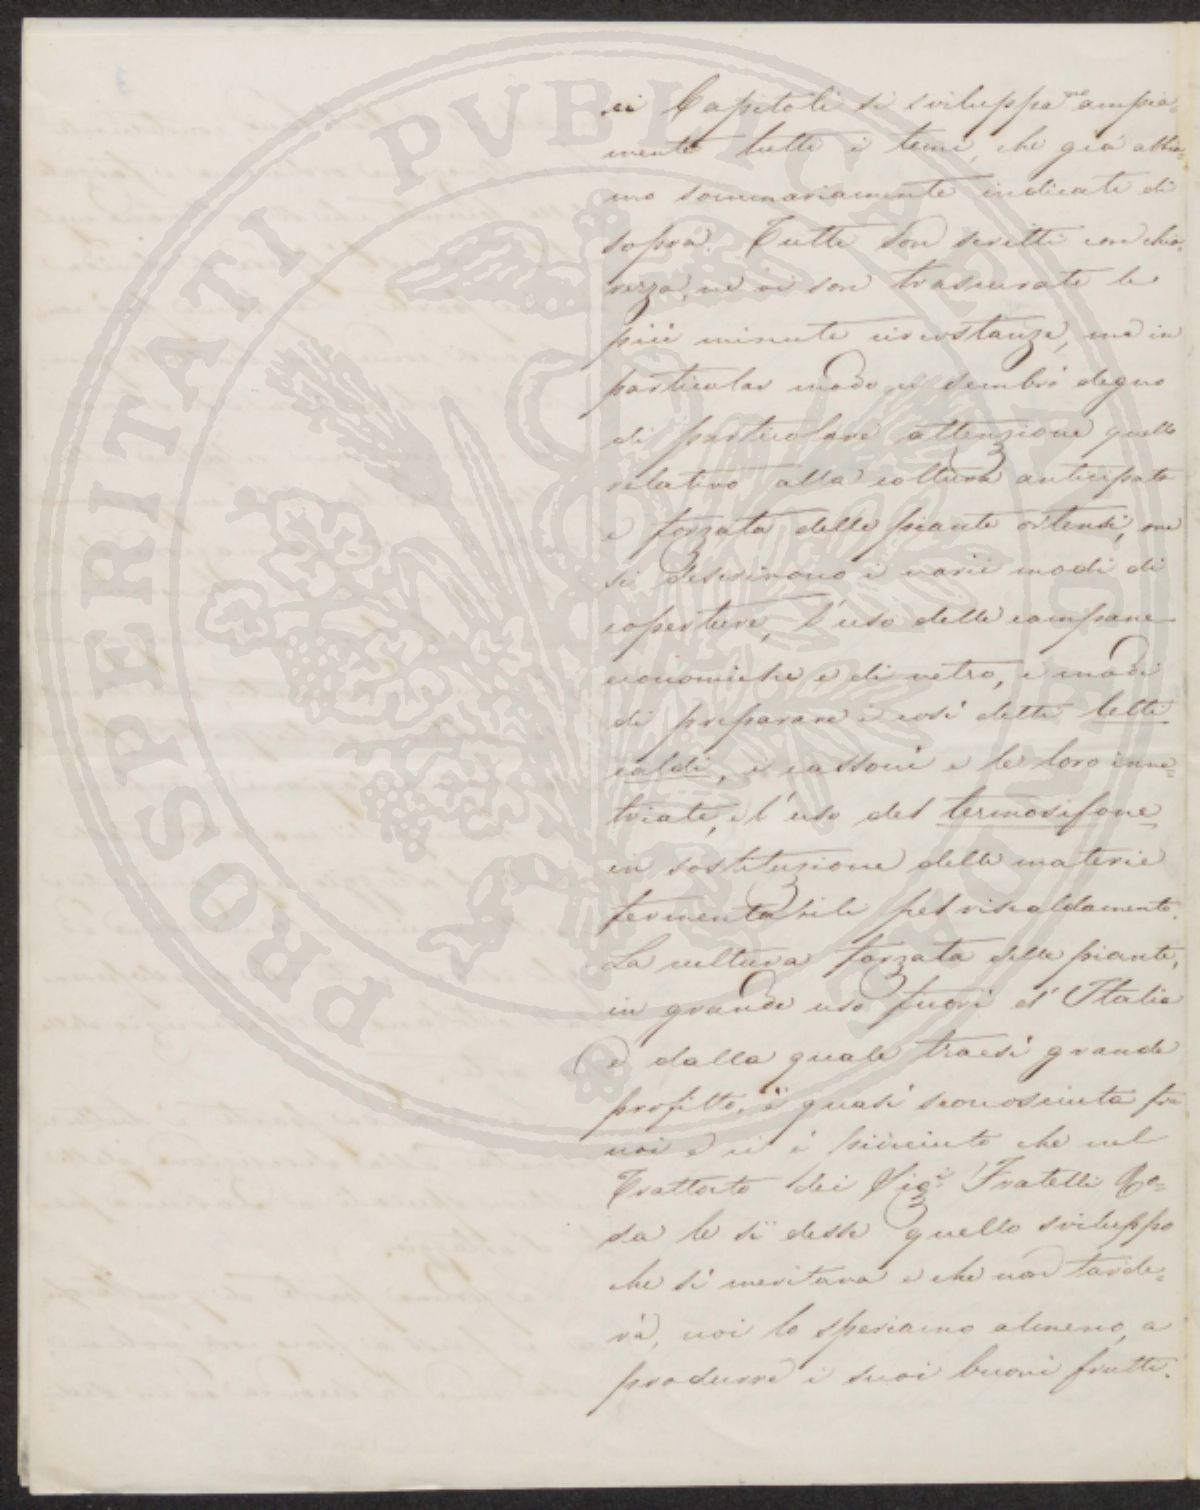 ci Capitoli si sviluppa^no ampia=
mente tutti i temi, che già abbia=
mo sommariamente indicati di
sopra. Tutti son scritti con chia=
rezza, nè vi son trascurate le
più minute circostanze, ma in
particolar modo ci sembrò degno
di particolare attenzione quello
relativo alla coltura anticipata
e forzata delle piante ortensi, ove
si descrivono i varii modi di
coperture, l'uso delle campane
economiche e di vetro, i modi
di preparare i così detti letti
caldi, i cassoni e le loro inve=
triate, e l'uso del termosifone
in sostituzione delle materie
fermentabili pel riscaldamento.
La cultura forzata delle piante,
in grande uso fuori d'Italia
e dalla quale traesi grande
profitto, è quasi sconosciuta fra
noi e ci è piaciuto che nel
Trattato dei Sig.i Fratelli Ro=
da le si desse quello sviluppo
che si meritava e che non tarde=
rà, noi lo speriamo almeno, a
produrre i suoi buoni frutti.
PROSPERITATI PVBLICAE